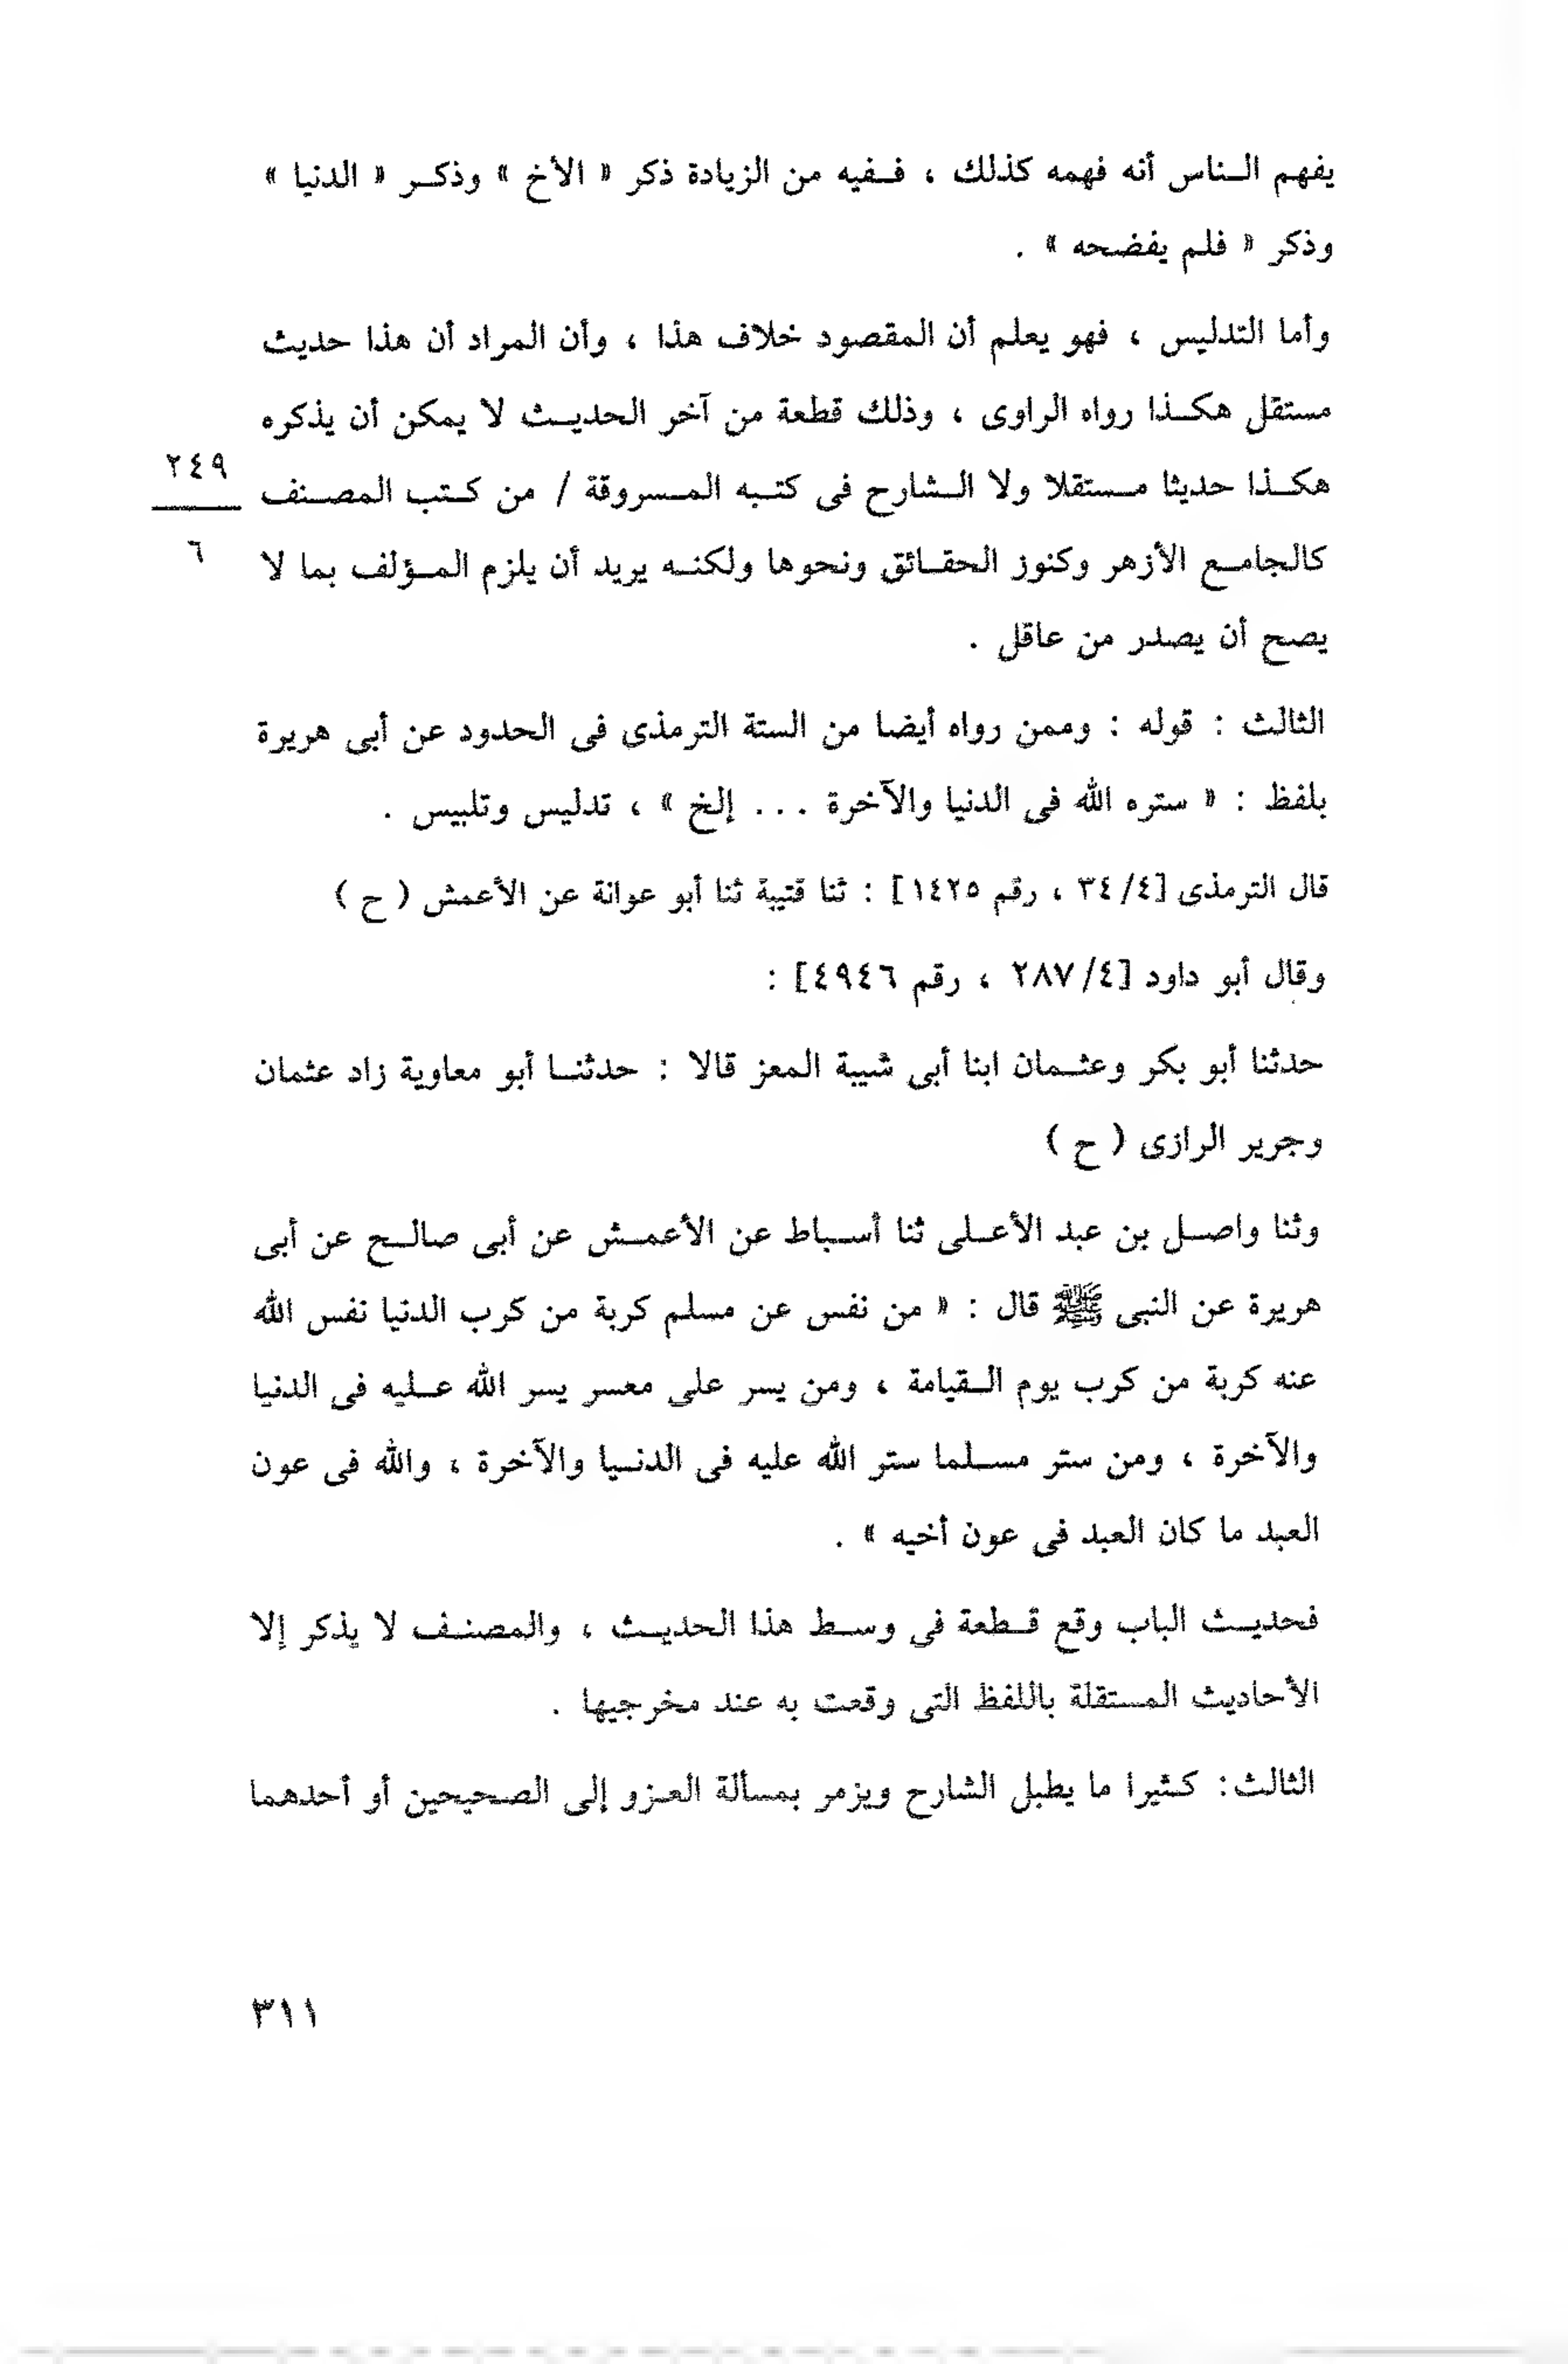 يفهم الناس أنه فهمه كذلك ، ففيه من الزيادة ذكر « الأخ » وذكر « الدنيا »
وذكر « فلم يفضحه » .
وأما التدليس ، فهو يعلم أن المقصود خلاف هذا ، وأن المراد أن هذا حديث
مستقل هكذا رواه الراوى ، وذلك قطعة من آخر الحديث لا يمكن أن يذكره
هكذا حديثا مستقلا ولا الشارح فى كتبه المسروقة / من كتب المصنف
٢٤٩
٦
كالجامع الأزهر وكنوز الحقائق ونحوها ولكنه يريد أن يلزم المؤلف بما لا
يصح أن يصدر من عاقل .
الثالث : قوله : وممن رواه أيضا من الستة الترمذى فى الحدود عن أبى هريرة
بلفظ : « ستره الله فى الدنيا والآخرة . . . إلخ » ، تدليس وتلبيس .
قال الترمذى [٤/ ٣٤ ، رقم ١٤٢٥] : ثنا قتيبة ثنا أبو عوانة عن الأعمش ( ح )
وقال أبو داود [٤/ ٢٨٧ ، رقم ٤٩٤٦] :
حدثنا أبو بكر وعثمان ابنا أبى شيبة المعز قالا : حدثنا أبو معاوية زاد عثمان
وجرير الرازى ( ح )
وثنا واصل بن عبد الأعلى ثنا أسباط عن الأعمش عن أبى صالح عن أبى
هريرة عن النبى ﷺ قال : « من نفس عن مسلم كربة من كرب الدنيا نفس الله
عنه كربة من كرب يوم القيامة ، ومن يسر على معسر يسر الله عليه فى الدنيا
والآخرة ، ومن ستر مسلما ستر الله عليه فى الدنيا والآخرة ، والله فى عون
العبد ما كان العبد فى عون أخيه » .
فحديث الباب وقع قطعة فى وسط هذا الحديث ، والمصنف لا يذكر إلا
الأحاديث المستقلة باللفظ التى وقعت به عند مخرجيها .
الثالث: كثيرا ما يطبل الشارح ويزمر بمسألة العزو إلى الصحيحين أو أحدهما
٣١١